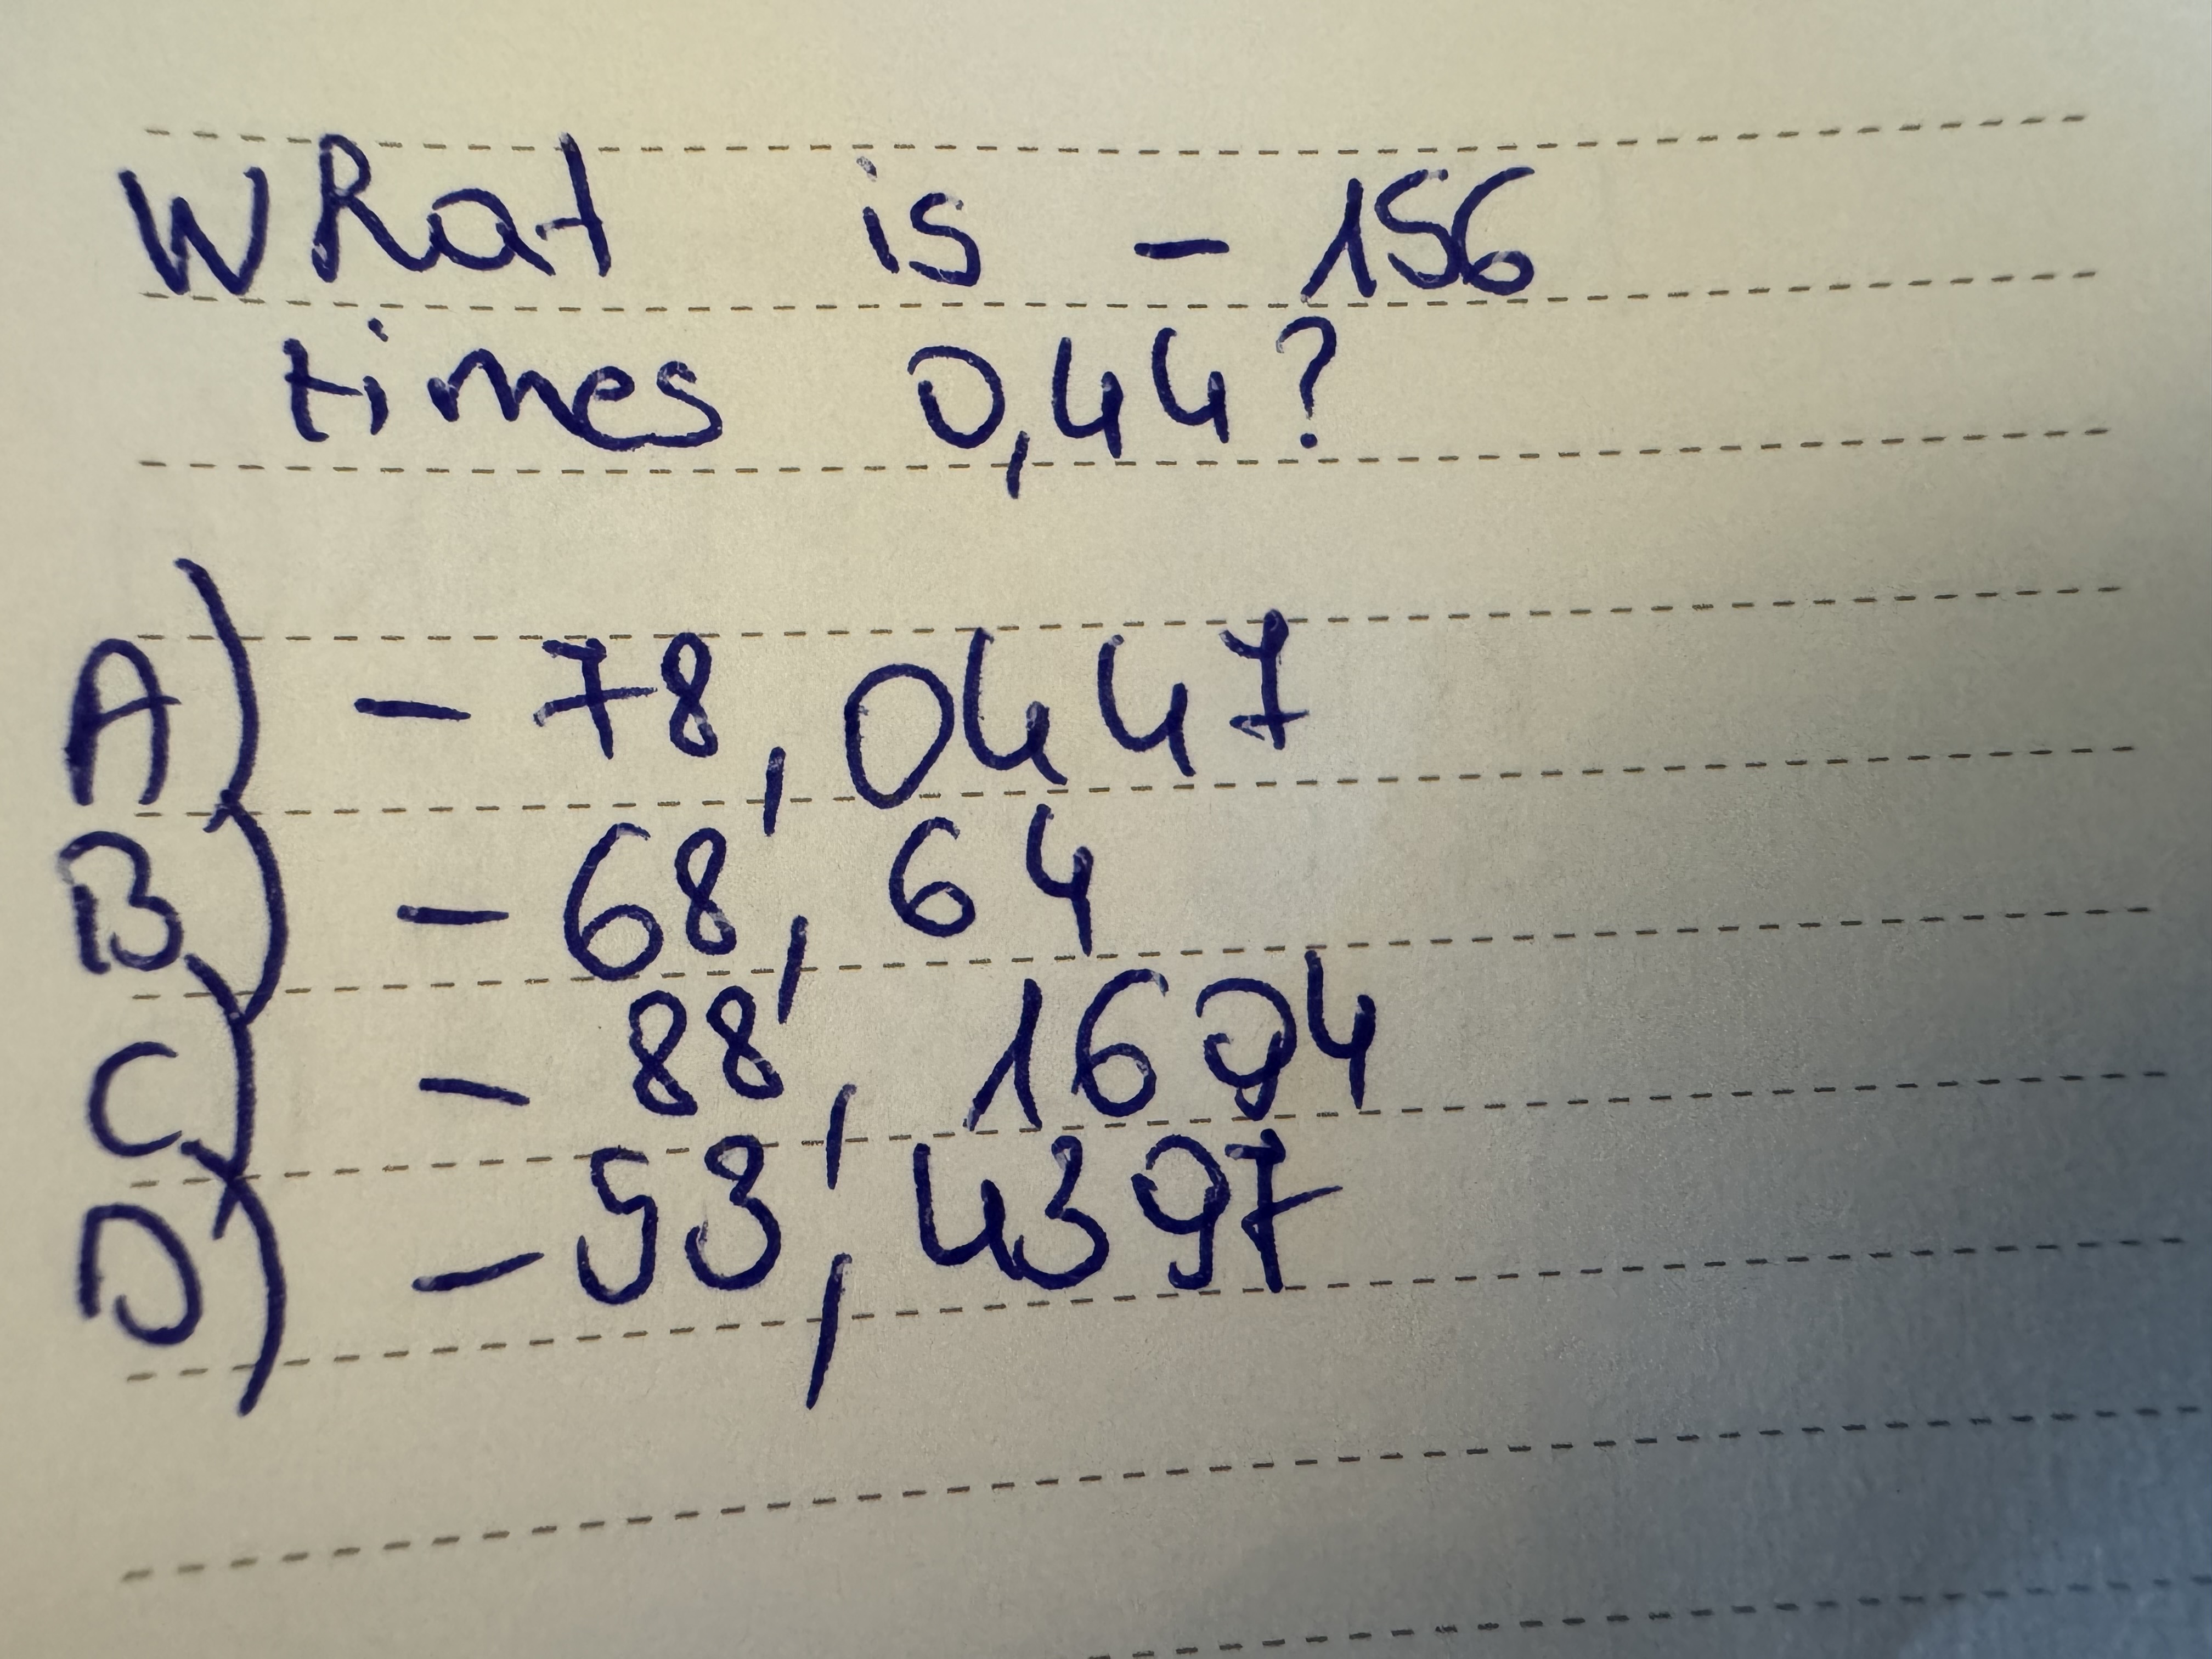 What is - 156
times 0,44?
A) - 78,0447
B) - 68,64
C) - 88,1694
D) - 53,4397